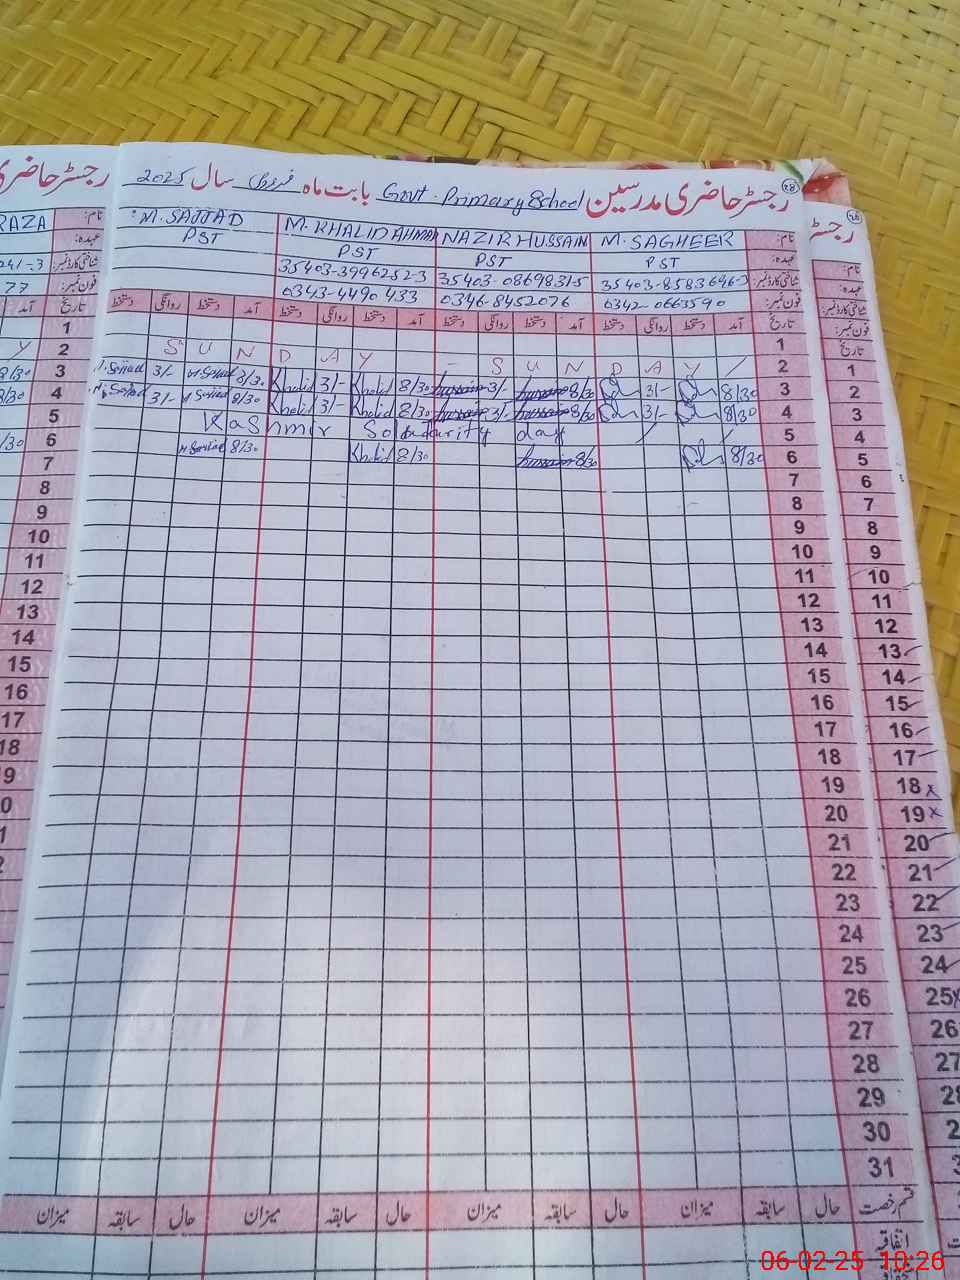 رجسٹر حاضری مدرسین Govt. Primary School بابت ماہ فروری سال 2025
نام: M. SAGHEER NAZIR HUSSAIN M. KHALID AHMAD M. SAJJAD
عہدہ: PST PST PST PST
شناختی کارڈ نمبر: 35403-8583696-3 35403-0869831-5 35403-3996252-3
فون نمبر: 0342-0663590 0346-8452076 0343-4490433
تاریخ آمد دستخط روانگی دستخط آمد دستخط روانگی دستخط آمد دستخط روانگی دستخط آمد دستخط روانگی دستخط
1
2 S U N D A Y - S U N D A Y
3 8/30 3/- 8/30 hussain 3/- hussain 8/30 Khalid 3/- Khalid 8/30 M. Sajjad 3/- M. Sajjad
4 8/30 3/- 8/30 hussain 3/- hussain 8/30 Khalid 3/- Khalid 8/30 M. Sajjad 3/- M. Sajjad
5 Kashmir Solidarity day
6 8/30 8/30 hussain 8/30 Khalid 8/30 M. Sajjad
7
8
9
10
11
12
13
14
15
16
17
18
19
20
21
22
23
24
25
26
27
28
29
30
31
قسم رخصت حال سابقہ میزان حال سابقہ میزان حال سابقہ میزان حال سابقہ میزان
اتفاقیہ
رجسٹر حاضری
RAZA
نام:
عہدہ:
241-3 شناختی کارڈ نمبر:
77 فون نمبر:
آمد تاریخ
1
2
8/30 3
8/30 4
5
/30 6
7
8
9
10
11
12
13
14
15
16
17
18
رجسٹر
نام:
عہدہ:
شناختی کارڈ نمبر:
فون نمبر:
تاریخ
1
2
3
4
5
6
7
8
9
10
11
12
13
14
15
16
17
18 x
19 x
20
21
22
23
24
25 x
26
27
06-02-25 10:26